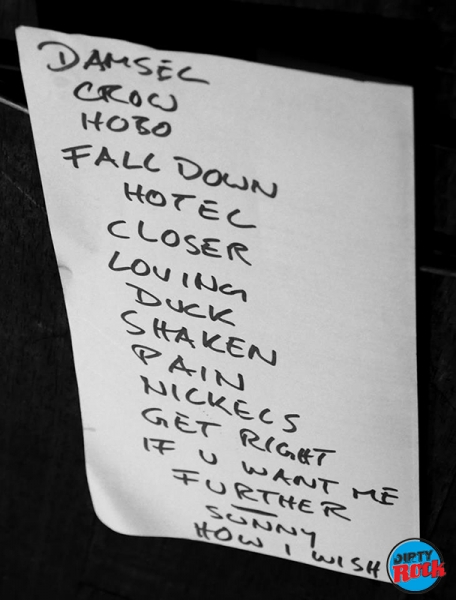 DAMSEL
CROW
HOBO
FALL DOWN
HOTEL
CLOSER
LOVING
DUCK
SHAKEN
PAIN
NICKELS
GET RIGHT
IF U WANT ME
FURTHER
SUNNY
HOW I WISH
DIRTY
Rock